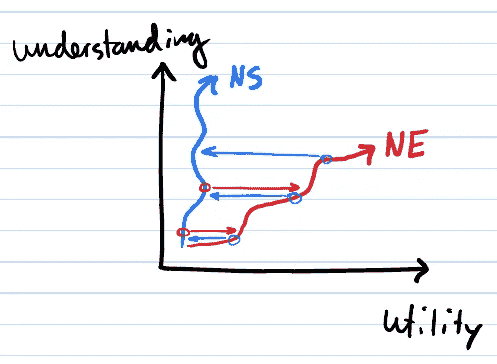 understanding
NS
NE
utility